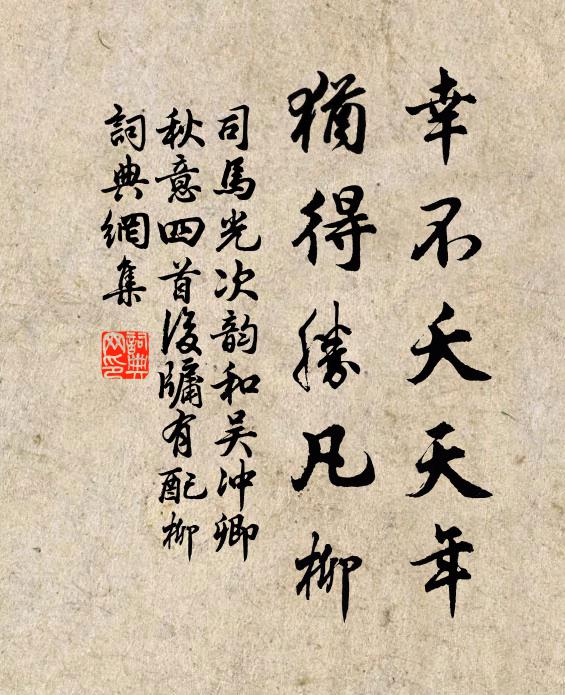 幸不夭天年
猶得勝凡柳
司馬光次韵和吴冲卿
秋意四首後牖有配柳
詞典網集
詞典
网印